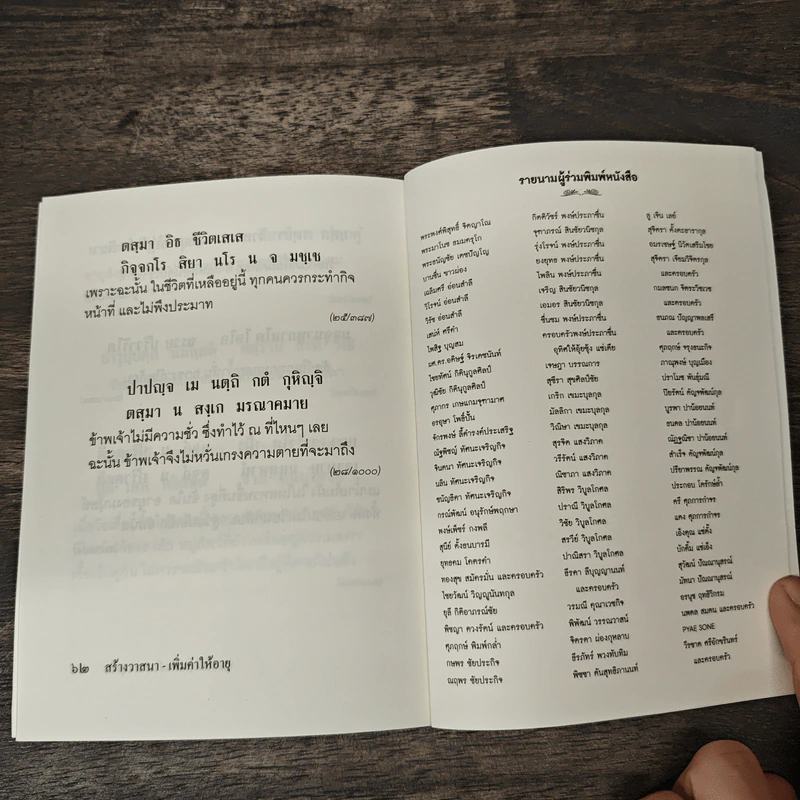 ตสฺมา อิธ ชีวิตเสเส
กิจฺจกโร สิยา นโร น จ มชฺเช
เพราะฉะนั้น ในชีวิตที่เหลืออยู่นี้ ทุกคนควรกระทำกิจ
หน้าที่ และไม่พึงประมาท
(๒๕/๓๘๗)
ปาปญฺจ เม นตฺถิ กตํ กุหิญฺจิ
ตสฺมา น สงฺเก มรณาคมาย
ข้าพเจ้าไม่มีความชั่ว ซึ่งทำไว้ ณ ที่ไหนๆ เลย
ฉะนั้น ข้าพเจ้าจึงไม่หวั่นเกรงความตายที่จะมาถึง
(๒๘/๑๐๐๐)
๖๒ สร้างวาสนา - เพิ่มค่าให้อายุ
รายนามผู้ร่วมพิมพ์หนังสือ
พระพงศ์พิสุทธิ์ จิตฺญาโณ
พระมาโนช ธมฺมครุโก
พระธนัญชัย เตชปญฺโญ
บานชื่น ขาวผ่อง
เฉลิมศรี อ่อนสำลี
วิโรจน์ อ่อนสำลี
วิรัช อ่อนสำลี
เสน่ห์ ศรีคำ
ไพสิฐ บุญสม
ผศ.ดร.อดิษฐ์ จิรเดชนันท์
ไชยทัศน์ กิตินุกูลศิลป์
วุฒิชัย กิตินุกูลศิลป์
ศุภากร เกษแกมจุฑามาศ
อรอุษา โพธิ์ปั้น
จักรพงษ์ ลี้ดำรงค์ประเสริฐ
ณัฐพิชญ์ ทัศนะเจริญกิจ
จินตนา ทัศนะเจริญกิจ
นลิน ทัศนะเจริญกิจ
ชนัญธิดา ทัศนะเจริญกิจ
กรณ์พัฒน์ อนุรักษ์พฤกษา
พงษ์เพ็ชร์ กงพลี
สุนีย์ ตั้งธนบารมี
ยุทธคม โคตรคำ
ทองสุข สมัครมั่น และครอบครัว
ไชยวัฒน์ วิญญูนันทกุล
ยุลี กิติอาภรณ์ชัย
พิชญา ควงรัตน์ และครอบครัว
ศุภฤกษ์ พิมพ์กล่ำ
กษพร ชัยประกิจ
ณฤพร ชัยประกิจ
กิตติวัชร์ พงษ์ประภาชื่น
จุฑาภรณ์ สินชัยวนิชกุล
รุ่งโรจน์ พงษ์ประภาชื่น
ยงยุทธ พงษ์ประภาชื่น
ไพลิน พงษ์ประภาชื่น
เจริญ สินชัยวนิชกุล
เอมอร สินชัยวนิชกุล
ชื่นชม พงษ์ประภาชื่น
ครอบครัวพงษ์ประภาชื่น
อุทิศให้อุ้ยซุ้ง แซ่เตีย
เจษฎา บรรณการ
สุชีรา สุขศิลป์ชัย
เกริก เขมะนุลกุล
มัลลิกา เขมะบุลกุล
วิณิษา เขมะบุลกุล
สุรจิต แสงวิภาค
วีรีรัตน์ แสงวิภาค
ณิชาภา แสงวิภาค
สิริพร วิบูลโกศล
ปราณี วิบูลโกศล
วิชัย วิบูลโกศล
สรวีย์ วิบูลโกศล
ปาณิสรา วิบูลโกศล
ธีรดา ลีบุญญานนท์
และครอบครัว
วรมณี คุณาเวชกิจ
พิพัฒน์ วรรณวาสน์
จิตรดา ผ่องกุหลาบ
ธีรภัทร์ พวงทับทิม
พิชชา คันสุทธิภานนท์
ฮู เจ็น เลย์
สุจิตรา ตั้งคะธารากุล
อมรเชษฐ์ นิวัตเสริมไชย
สุจิตรา เจียมวิจิตรกุล
และครอบครัว
กมลชนก จิตระวิชเวช
และครอบครัว
ธนกณ ปัญญาพลเสรี
และครอบครัว
ศุภฤกษ์ จรุงธนะกิจ
ภาณุพงษ์ บุญเมือง
ปราโมช พันธุ์มณี
ปิยรัตน์ ตัญจพัฒน์กุล
บูรพา ปาน้อยนนท์
ธนดล ปาน้อยนนท์
ณัฏฐณิชา ปาน้อยนนท์
สำเร็จ ตัญจพัฒน์กุล
ปรียาพรรณ ตัญจพัฒน์กุล
ประกอบ โตรักษ์ล้ำ
ตรี ศุภการกำจร
แดง ศุภการกำจร
เอ็งคุณ แซ่ตั้ง
บักตั้ม แซ่เฮ็ง
สุวัฒน์ ปัณณานุสรณ์
มัทนา ปัณณานุสรณ์
อรนุช ฤทธิรักรม
นพดล สมคน และครอบครัว
PYAE SONE
วีรชาต ศรีจักรรินทร์
และครอบครัว